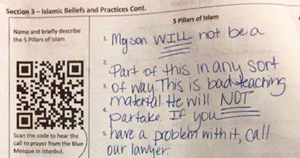 Section 3 – Islamic Beliefs and Practices Cont.
5 Pillars of Islam
Name and briefly describe
the 5 Pillars of Islam
Scan the code to hear the
call to prayer from the Blue
Mosque in Istanbul.
1. My son WILL not be a
2. Part of this in any sort
3. of way. This is bad teaching
material. He will NOT
4. partake. If you
5. have a problem with it, call
our lawyer.